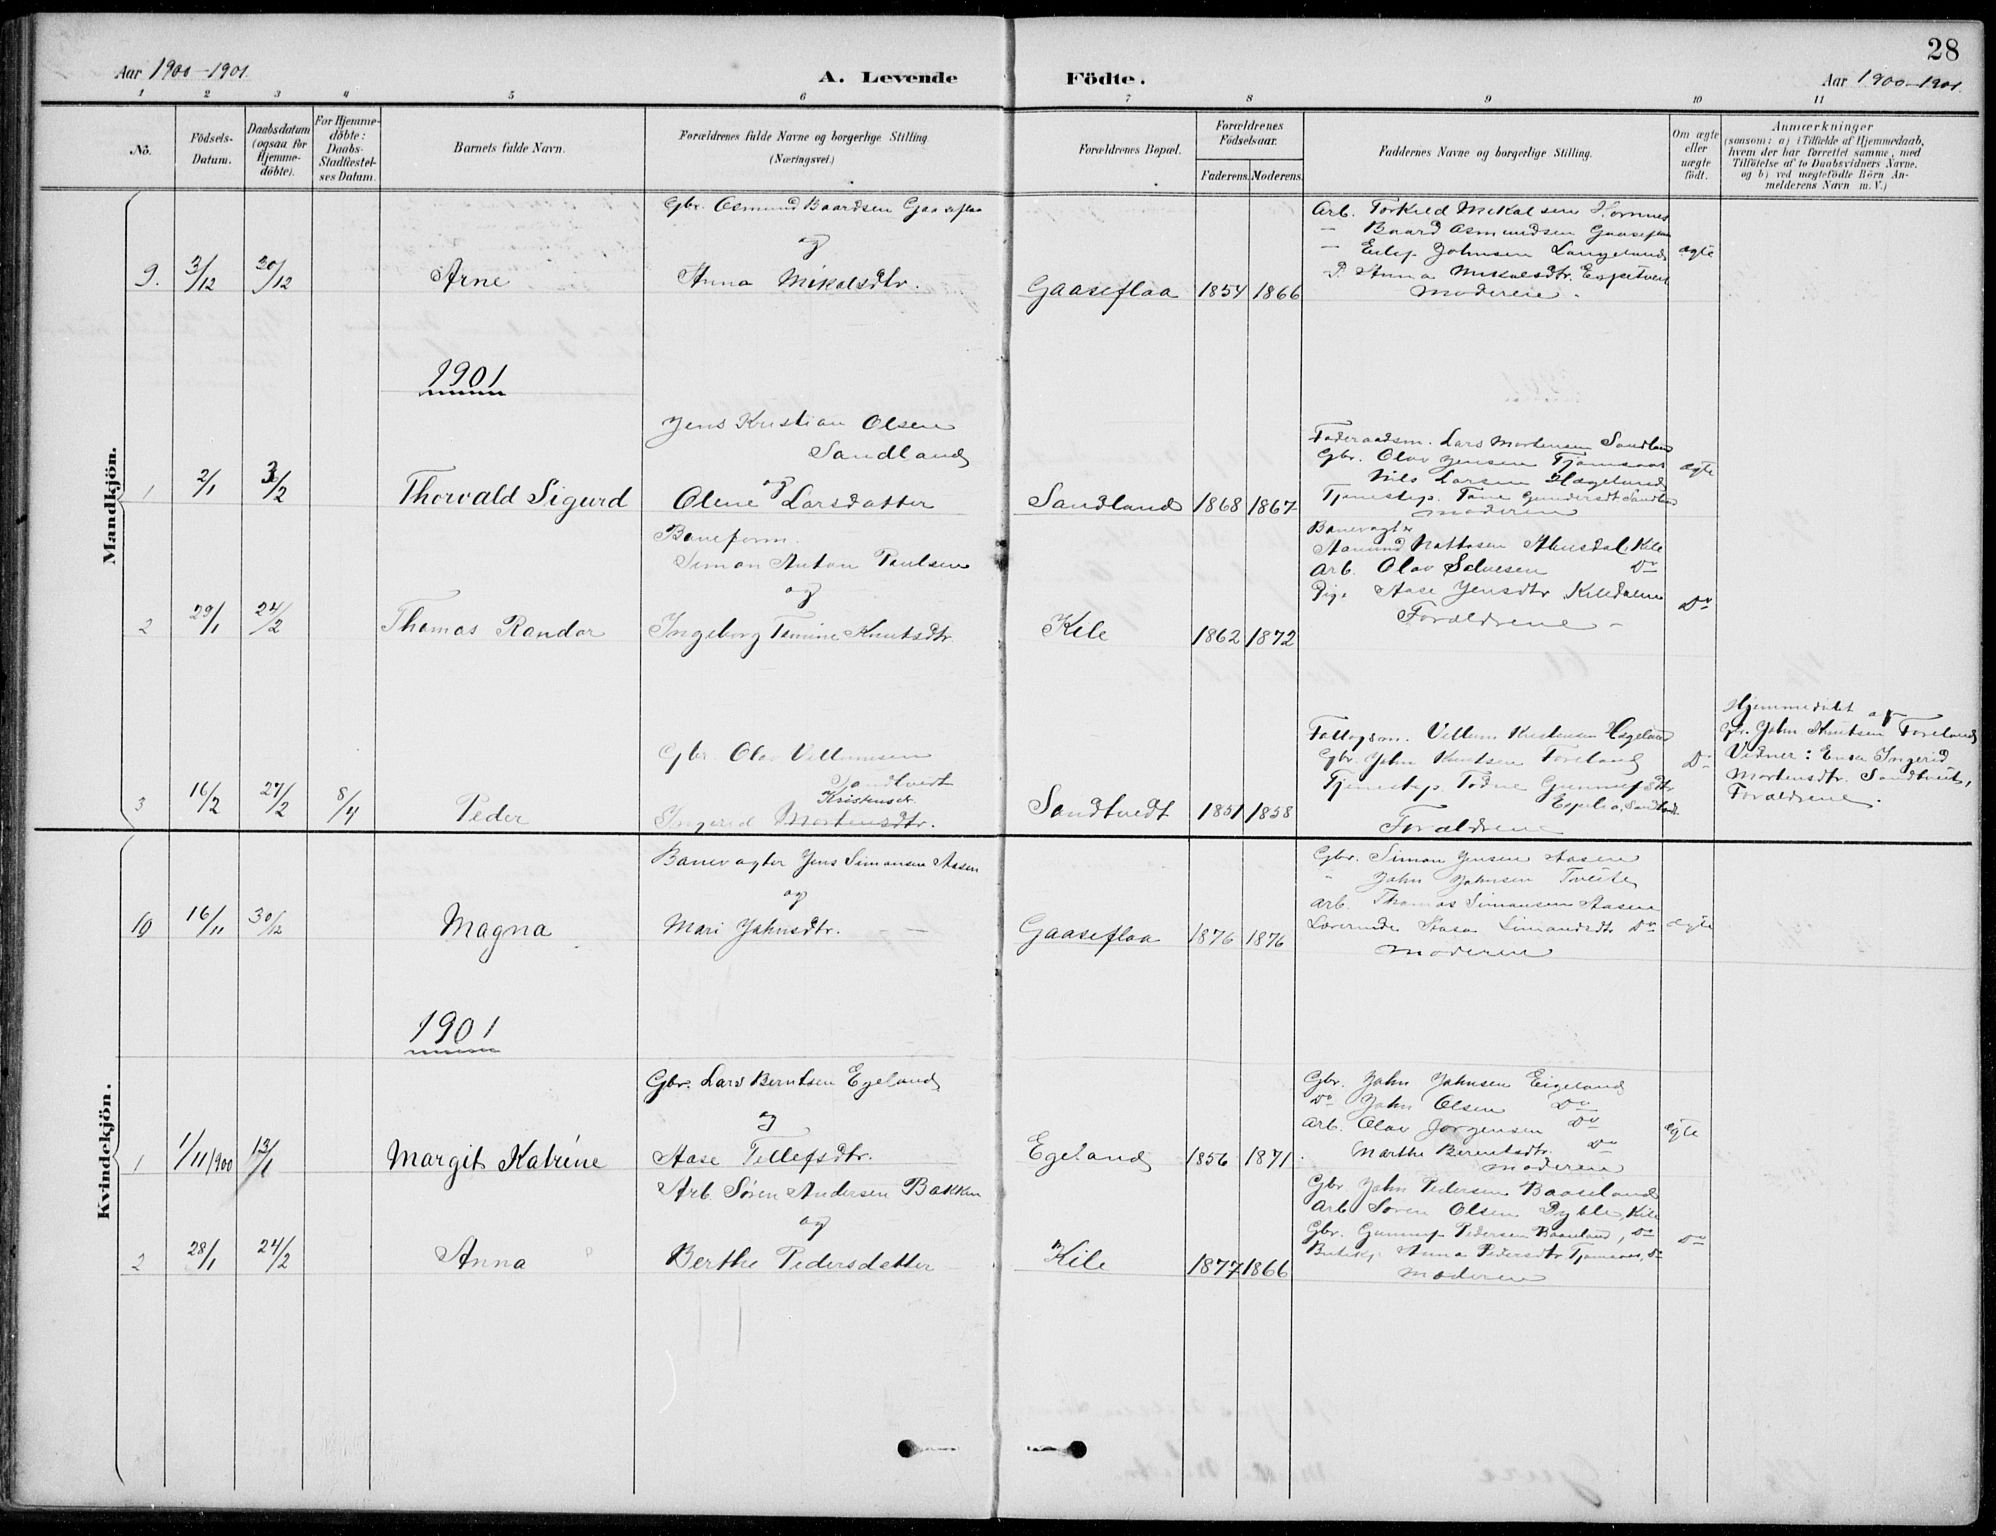 28
Aar 1900-1901.
A. Levende Födte.
Aar 1900-1901.
1 2 3 4 5 6 7 8 9 10 11
No.
Födsels-Datum.
Daabsdatum (ogsaa for Hjemme-döbte).
For Hjemme-döbte: Daabs-Stadfæstel-ses Datum.
Barnets fulde Navn.
Forældrenes fulde Navne og borgerlige Stilling
(Næringsvei)
Forældrenes Bopæl.
Forældrenes Födselsaar.
Faderens. Moderens.
Faddernes Navne og borgerlige Stilling.
Om ægte eller uægte födt.
Anmærkninger
(saasom: a) i Tilfælde af Hjemmedaab,
hvem der har forrettet samme, med
Tilföielse af to Daabsvidners Navne,
og b) ved uægtefödte Börn An-
melderens Navn m. V.)
Mandkjön.
9. 3/12 30/12 Arne
Gbr. Osmund Baardsen Gaaseflaa
og
Anna Mikalsdtr.
Gaaseflaa 1854 1866
Arb. Torkild Mikalsen Hornnes
— Baard Osmundsen Gaaseflaa
— Eilef Johnsen Langeland
P. Anna Mikalsdtr. Espetveit
Moderen.
ægte
1901
1 2/1 3/2 Thorvald Sigurd
Jens Kristian Olsen
Sandland
og
Olene Larsdatter
Sandland 1868 1867
Føderaadsm. Lars Mortensen Sandland
Gbr. Olav Jensen Tjomsaas
Nils Larsen Hægeland
Tjenestep. Tone Gundersdt Sandland
Moderen
ægte
2 29/1 24/2 Thomas Randor
Baneform.
Simon Anton Paulsen
og
Ingeborg Tomine Knutsdtr.
Kile 1862 1872
Banevogter
Aamund Kile
Arb. Olav Salvesen Do
Pige Aase Jensdtr Kiledalen
Forældrene
Do
3 16/2 27/2 8/4 Peder
Gbr. Olav Vellumsen
Sandtvedt
Kristensdt.
Ingerid Mortensdtr.
Sandtvedt 1851 1858
Fattigsm. Vellum Kristensen Hægeland
Gbr. John Knutsen Foreland
Tjenestep. Todne Gunnufsdtr
Sandland
Forældrene
Do
Hjemmedøbt af
Gbr. John Knutsen Foreland
Vidner: Enke Ingerid
Mortensdtr. Sandtveit,
Forældrene.
Kvindekjön.
10 16/11 30/12 Magna
Banevogter Jens Simonsen Aasen
og
Mari Johnsdtr. —
Gaaseflaa 1876 1876
Gbr. Simon Jensen Aasen
" John Johnsen Tveite
Arb. Thomas Simonsen Aasen
Lærerinde Aasa Simonsdtr Do
Moderen
ægte
1901
1 1/11 1900 13/1 Margit Katrine
Gbr. Lars Berntsen Egeland
og
Aase Tellefsdtr.
Egeland 1856 1871
Gbr. John Johnsen Eigeland
Do John Olsen Do
Arb. Olav Jørgensen Do
Marthe Berentsdtr. Do
Moderen
ægte
2 28/1 24/2 Anna
Arb. Søren Andersen Bakken
og
Berthe Pedersdatter
Kile 1877 1866
Gbr John Pedersen Baaseland
Arb Søren Olsen Dyble, Kile
Gbr. Gunnuf Pedersen Baaseland, Do
Anna Pedersdtr Tjomsaas, Do
Moderen
Do